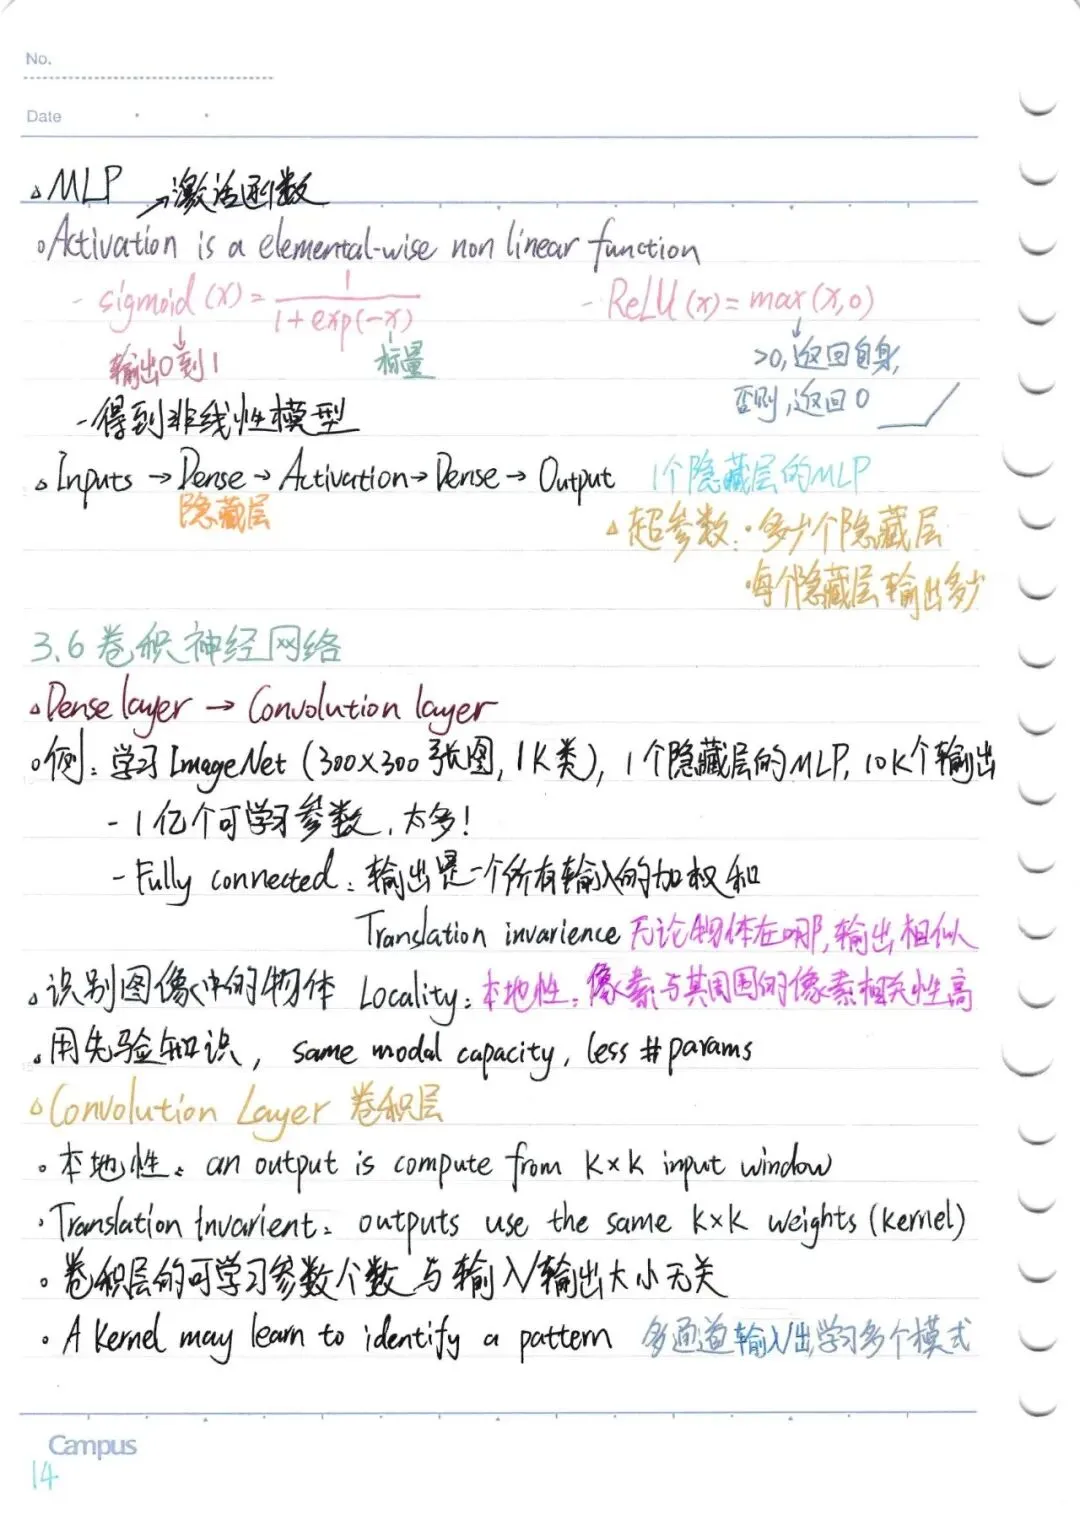 No.
Date
△MLP →激活函数
○Activation is a elemental-wise non linear function
- sigmoid (x) = 1 / 1 + exp(-x) - ReLU (x) = max (x, 0)
输出0到1 标量 >0, 返回自身,
否则, 返回0
-得到非线性模型
△Inputs → Dense → Activation → Dense → Output 1个隐藏层的MLP
隐藏层
△超参数:·多少个隐藏层
·每个隐藏层输出多少
3.6 卷积神经网络
△Dense layer → Convolution layer
○例: 学习 ImageNet (300×300 张图, 1K类), 1个隐藏层的MLP, 10K个输出
- 1亿个可学习参数, 太多!
- Fully connected: 输出是一个所有输入的加权和
Translation invarience 无论物体在哪, 输出相似
△识别图像中的物体 Locality: 本地性: 像素与其周围的像素相关性高
△用先验知识, same modal capacity, less # params
△Convolution Layer 卷积层
○本地性: an output is compute from K×K input window
·Translation Invarient: outputs use the same K×K weights (kernel)
○卷积层的可学习参数个数与输入/输出大小无关
·A kernel may learn to identify a pattern 多通道输入/出,学习多个模式
Campus
14